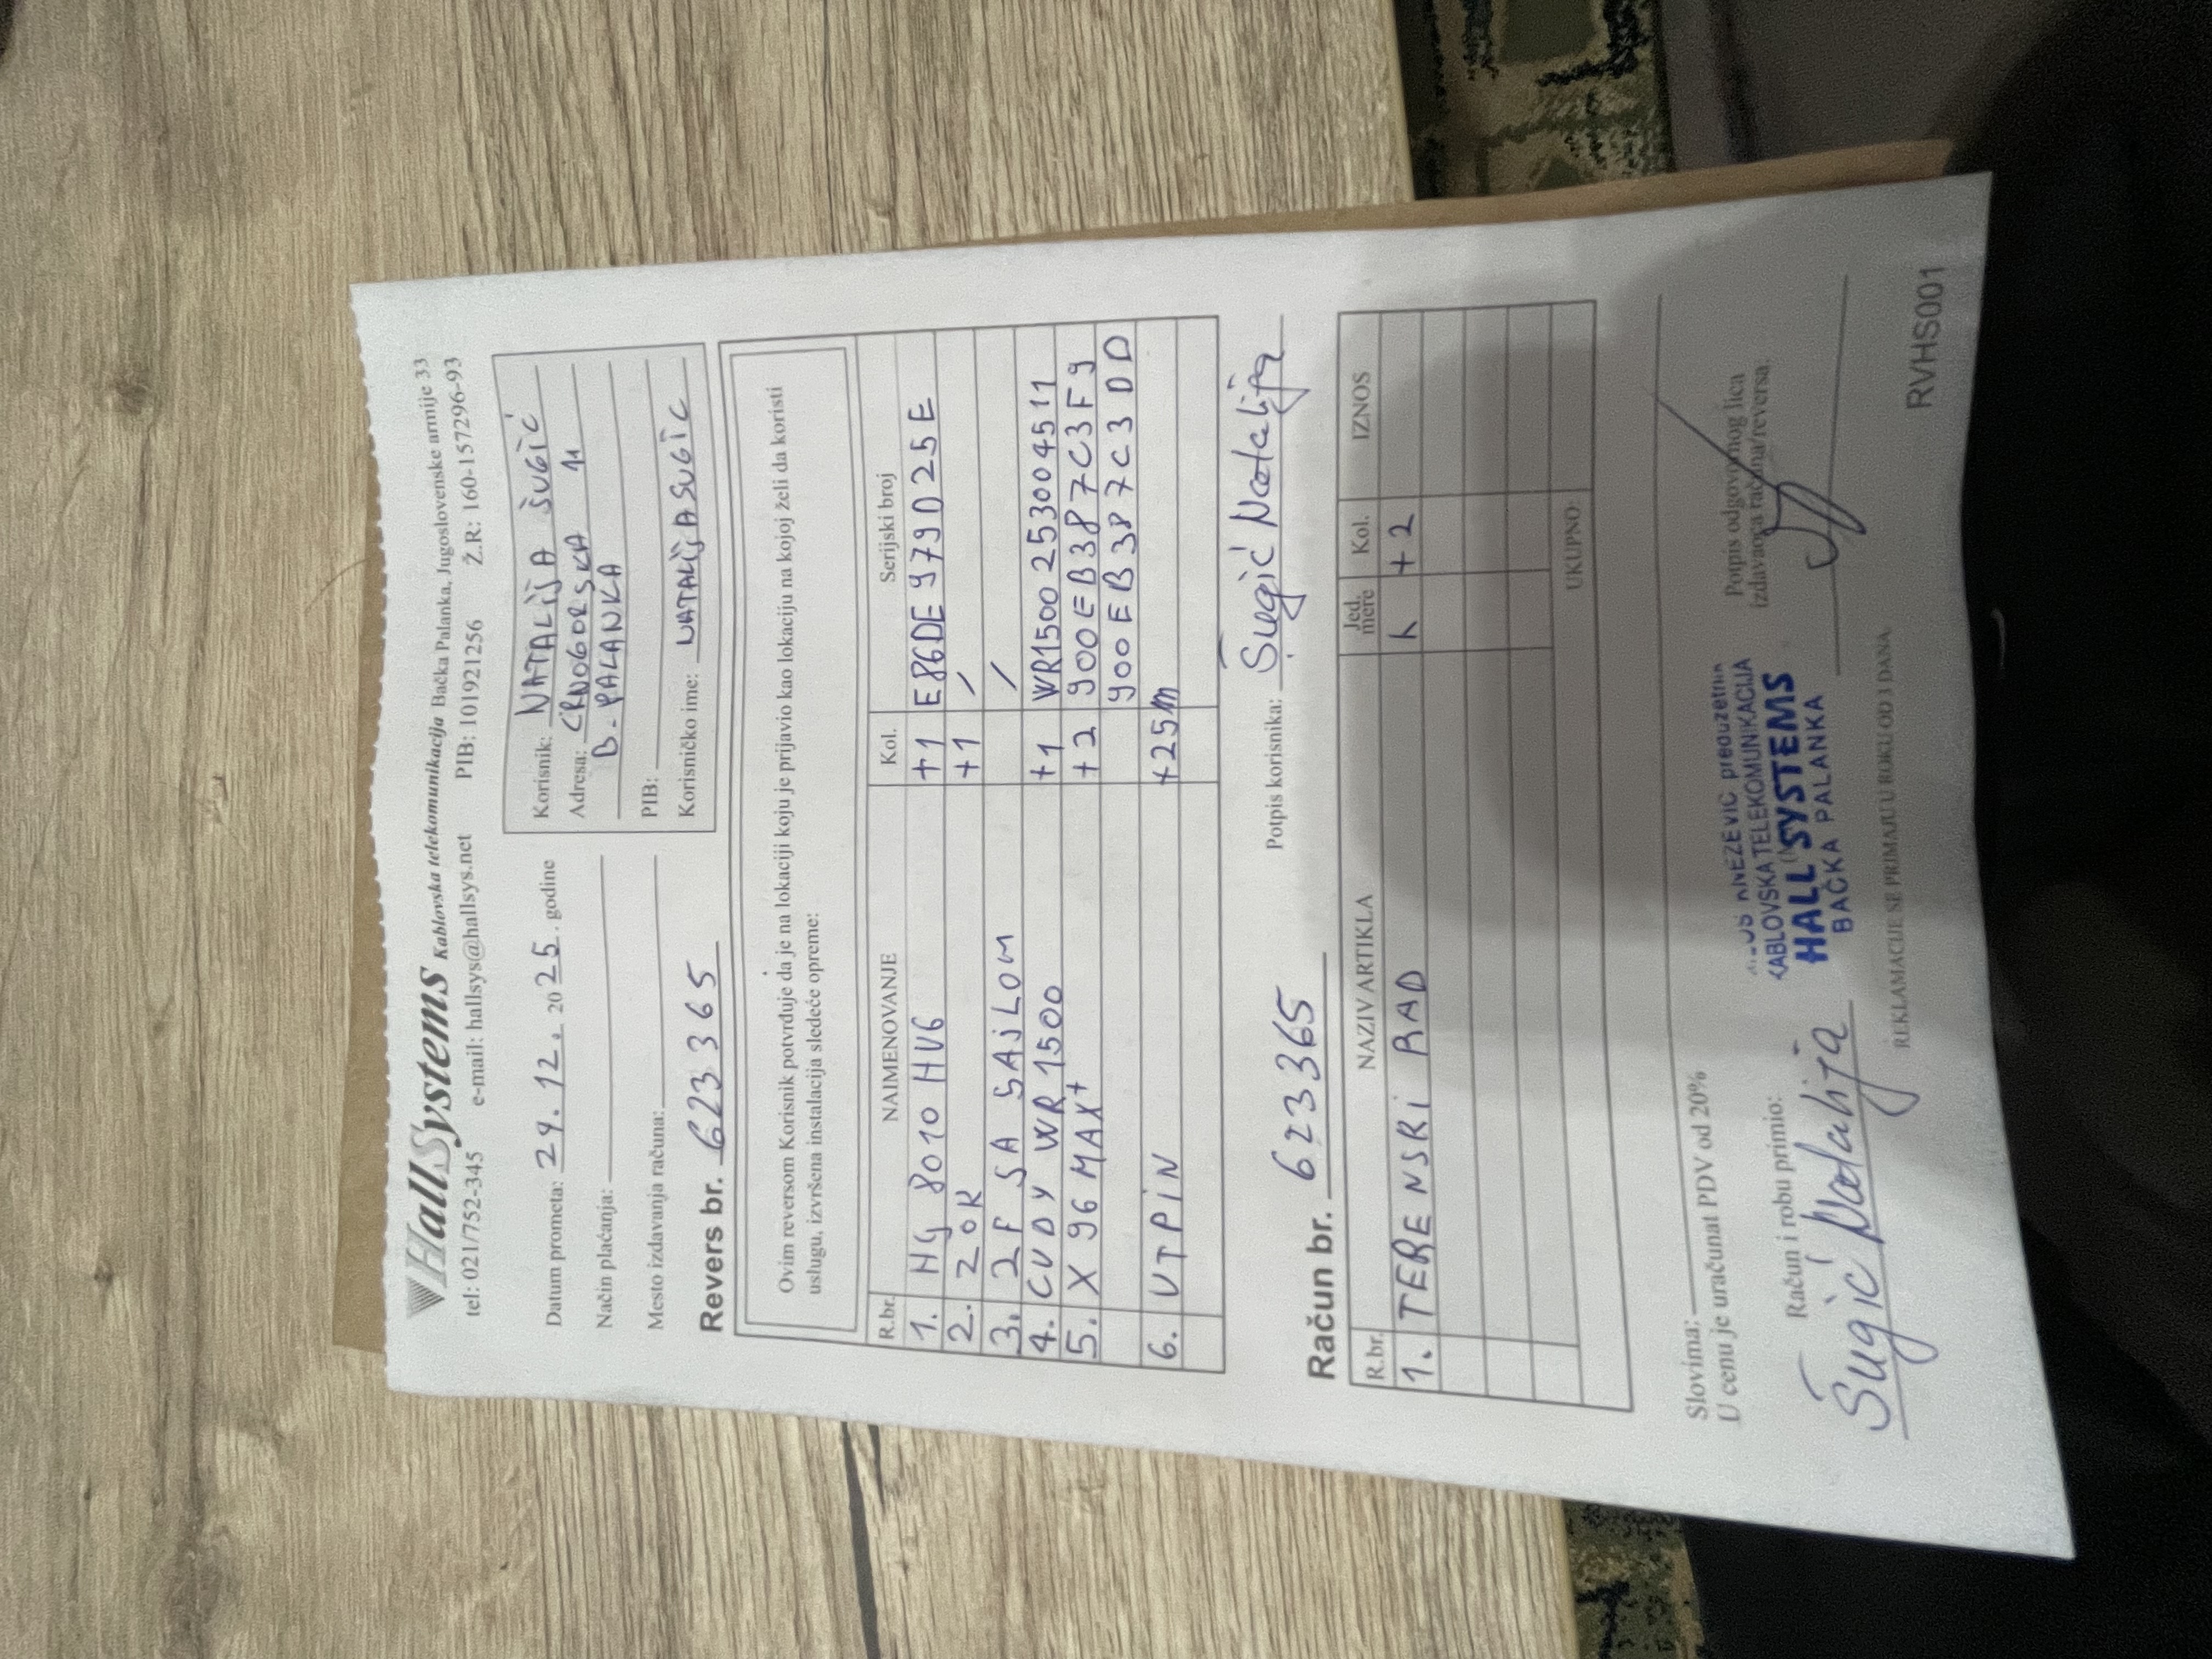 HallSystems Kablovska telekomunikacija Bačka Palanka, Jugoslovenske armije 33
tel: 021/752-345 e-mail: hallsys@hallsys.net PIB: 101921256 Ž.R: 160-157296-93
Datum prometa: 29. 12. 2025. godine
Način plaćanja:
Mesto izdavanja računa:
Revers br. 623365
Korisnik: NATALIJA ŠUGIĆ
Adresa: CRNOGORSKA 11
B. PALANKA
PIB:
Korisničko ime: NATALIJASUGIC
Ovim reversom Korisnik potvrđuje da je na lokaciji koju je prijavio kao lokaciju na kojoj želi da koristi
uslugu, izvršena instalacija sledeće opreme:
R.br. NAIMENOVANJE Kol. Serijski broj
1. HG 8010 HV6 +1 E86DE979D25E
2. ZOK +1 /
3. 2F SA SAJLOM /
4. CUDY WR 1500 +1 WR1500253004511
5. X 96 MAX+ +2 900EB387C3F9
900EB387C3DD
6. UTPIN +25m
Potpis korisnika: Šugić Natalija
Račun br. 623365
R.br. NAZIV ARTIKLA Jed. mere Kol. IZNOS
1. TERENSRI RAD h +2
UKUPNO:
Slovima:
U cenu je uračunat PDV od 20%
Račun i robu primio:
Šugić Natalija
KNEZEVIC preduzetnik
KABLOVSKA TELEKOMUNIKACIJA
HALL SYSTEMS
BAČKA PALANKA
Potpis odgovornog lica
izdavaoca računa/reversa:
REKLAMACIJE SE PRIMAJU U ROKU OD 3 DANA.
RVHS001